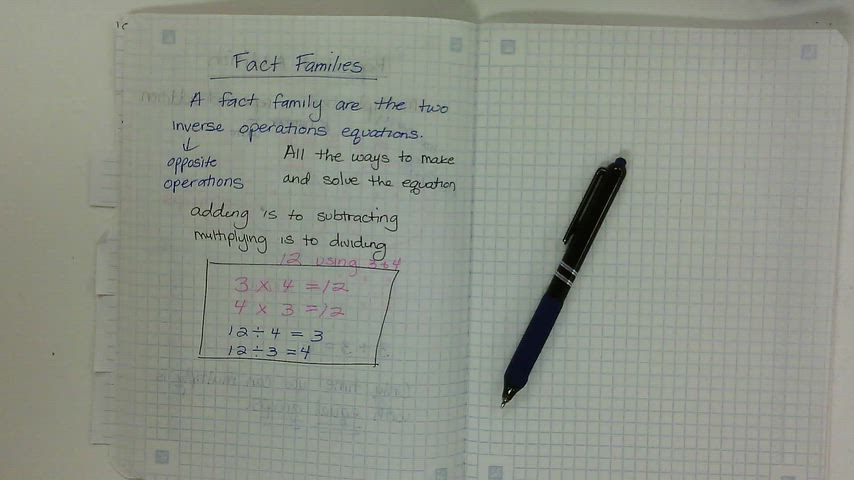 Fact Families
A fact family are the two
inverse operations equations.
↓
opposite
operations
All the ways to make
and solve the equation
adding is to subtracting
multiplying is to dividing
12 using 3 & 4
3 x 4 = 12
4 x 3 = 12
12 ÷ 4 = 3
12 ÷ 3 = 4